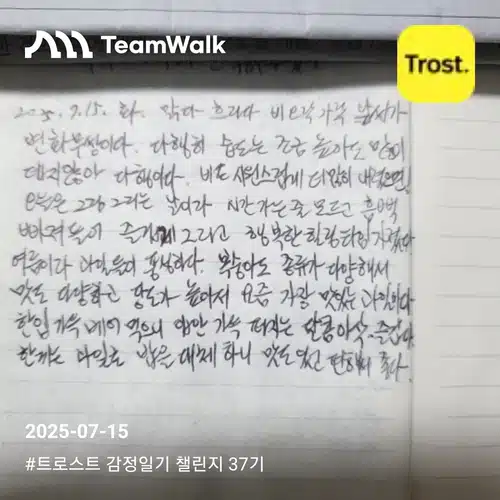 TeamWalk
Trost.
2025. 7. 15. 화. 맑다 흐리다 비오락가락 날씨가
변화무쌍이다. 다행히 습도는 조금 높아도 많이
덥지않아 다행이다. 비도 시원스럽게 내렸으면!
오늘은 그림 그리는 날이라 시간가는줄 모르고 흠뻑
빠져들어 즐기고 행복한 힐링타임가졌다
여름이라 과일들이 풍성하다. 복숭아도 종류가 다양해서
맛도 다양하고 당도가 높아서 요즘 가장 맛있는 과일이다
한입 가득 베어 먹으니 입안 가득 퍼지는 달콤아삭 즙감
한끼는 과일로 밥을 대체 하니 맛도 있고 편해서 좋다.
2025-07-15
#트로스트 감정일기 챌린지 37기